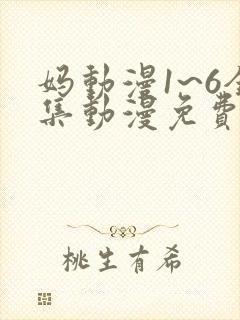 妈動漫1~6全
集動漫免費
桃生有希